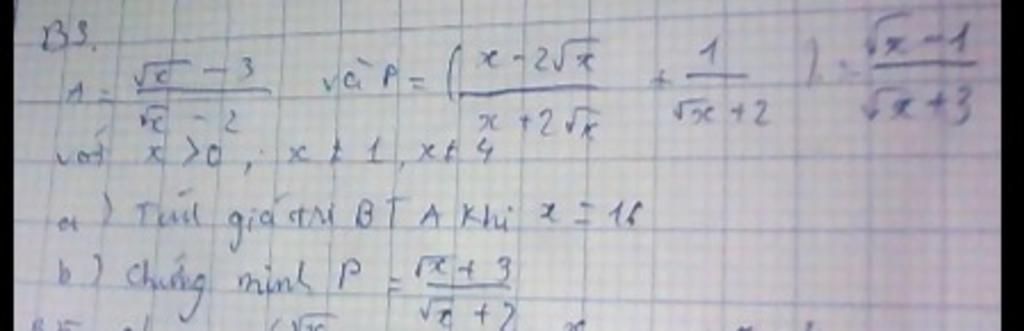 B3.
A = (√x - 3)/(√x - 2) và P = ( (x - 2√x)/(x + 2√x) + 1/(√x + 2) ) : (√x - 1)/(√x + 3)
với x > 0, x ≠ 1, x ≠ 4
a) Tính giá trị BT A khi x = 16
b) Chứng minh P = (√x + 3)/(√x + 2)